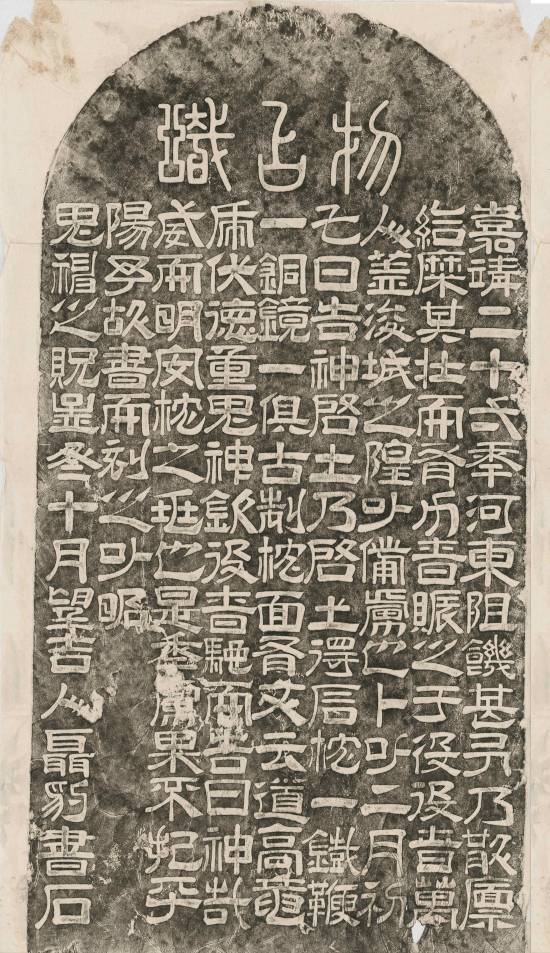 物占識
嘉靖二十弍秊河東阻饑甚予乃散廩
給糜其壯而有力者賑之于役役者萬
人蓋浚城之隍以備虜也卜以二月初
七日告神啓土乃啓土得石枕一鐵鞭
一銅鏡一俱古制枕面有文云道高龍
虎伏德重鬼神欽役者馳而告曰神哉
威而明安枕之垂也是秊虜果不犯平
陽予故書而刻之以昭
鬼神之貺是秊十月望吉人聶豹書石